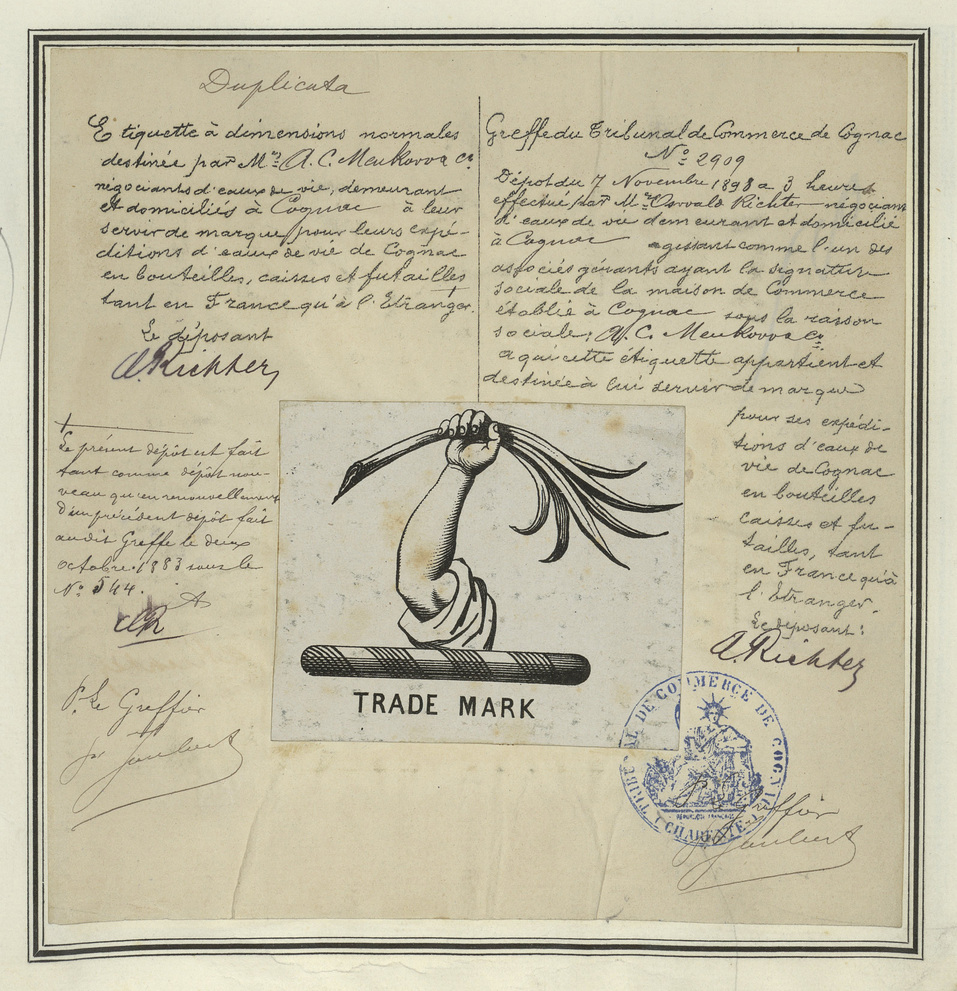 Duplicata
Etiquette à dimensions normales
destinée par Mrs A. C. Meukow & Co
négociants d'eaux de vie, demeurant
et domiciliés à Cognac à leur
servir de marque pour leurs expé-
ditions d'eaux de vie de Cognac
en bouteilles, caisses et futailles
tant en France qu'à l'Etranger.
Le déposant
A. Richter
Le présent dépôt est fait
tant comme dépôt nou-
veau qu'en renouvellement
d'un précédent dépôt fait
au dit Greffe le deux
octobre 1883 sous le
No 544.
AR
P. Le Greffier
Greffe du Tribunal de Commerce de Cognac
No 2909
Dépot du 7 Novembre 1898 a 3 heures
effectué par Mr Richter négociant
d'eaux de vie demeurant et domicilié
à Cognac agissant comme l'un des
associés gérants ayant la signature
sociale de la maison de Commerce
établie à Cognac sous la raison
sociale: A. C. Meukow & Co
a qui cette étiquette appartient et
destinée à lui servir de marque
pour ses expédi-
tions d'eaux de
vie de Cognac
en bouteilles
caisses et fu-
tailles, tant
en France qu'à
l'Etranger.
Le déposant:
A. Richter
TRADE MARK
TRIBUNAL DE COMMERCE DE COGNAC
(CHARENTE)
Greffier